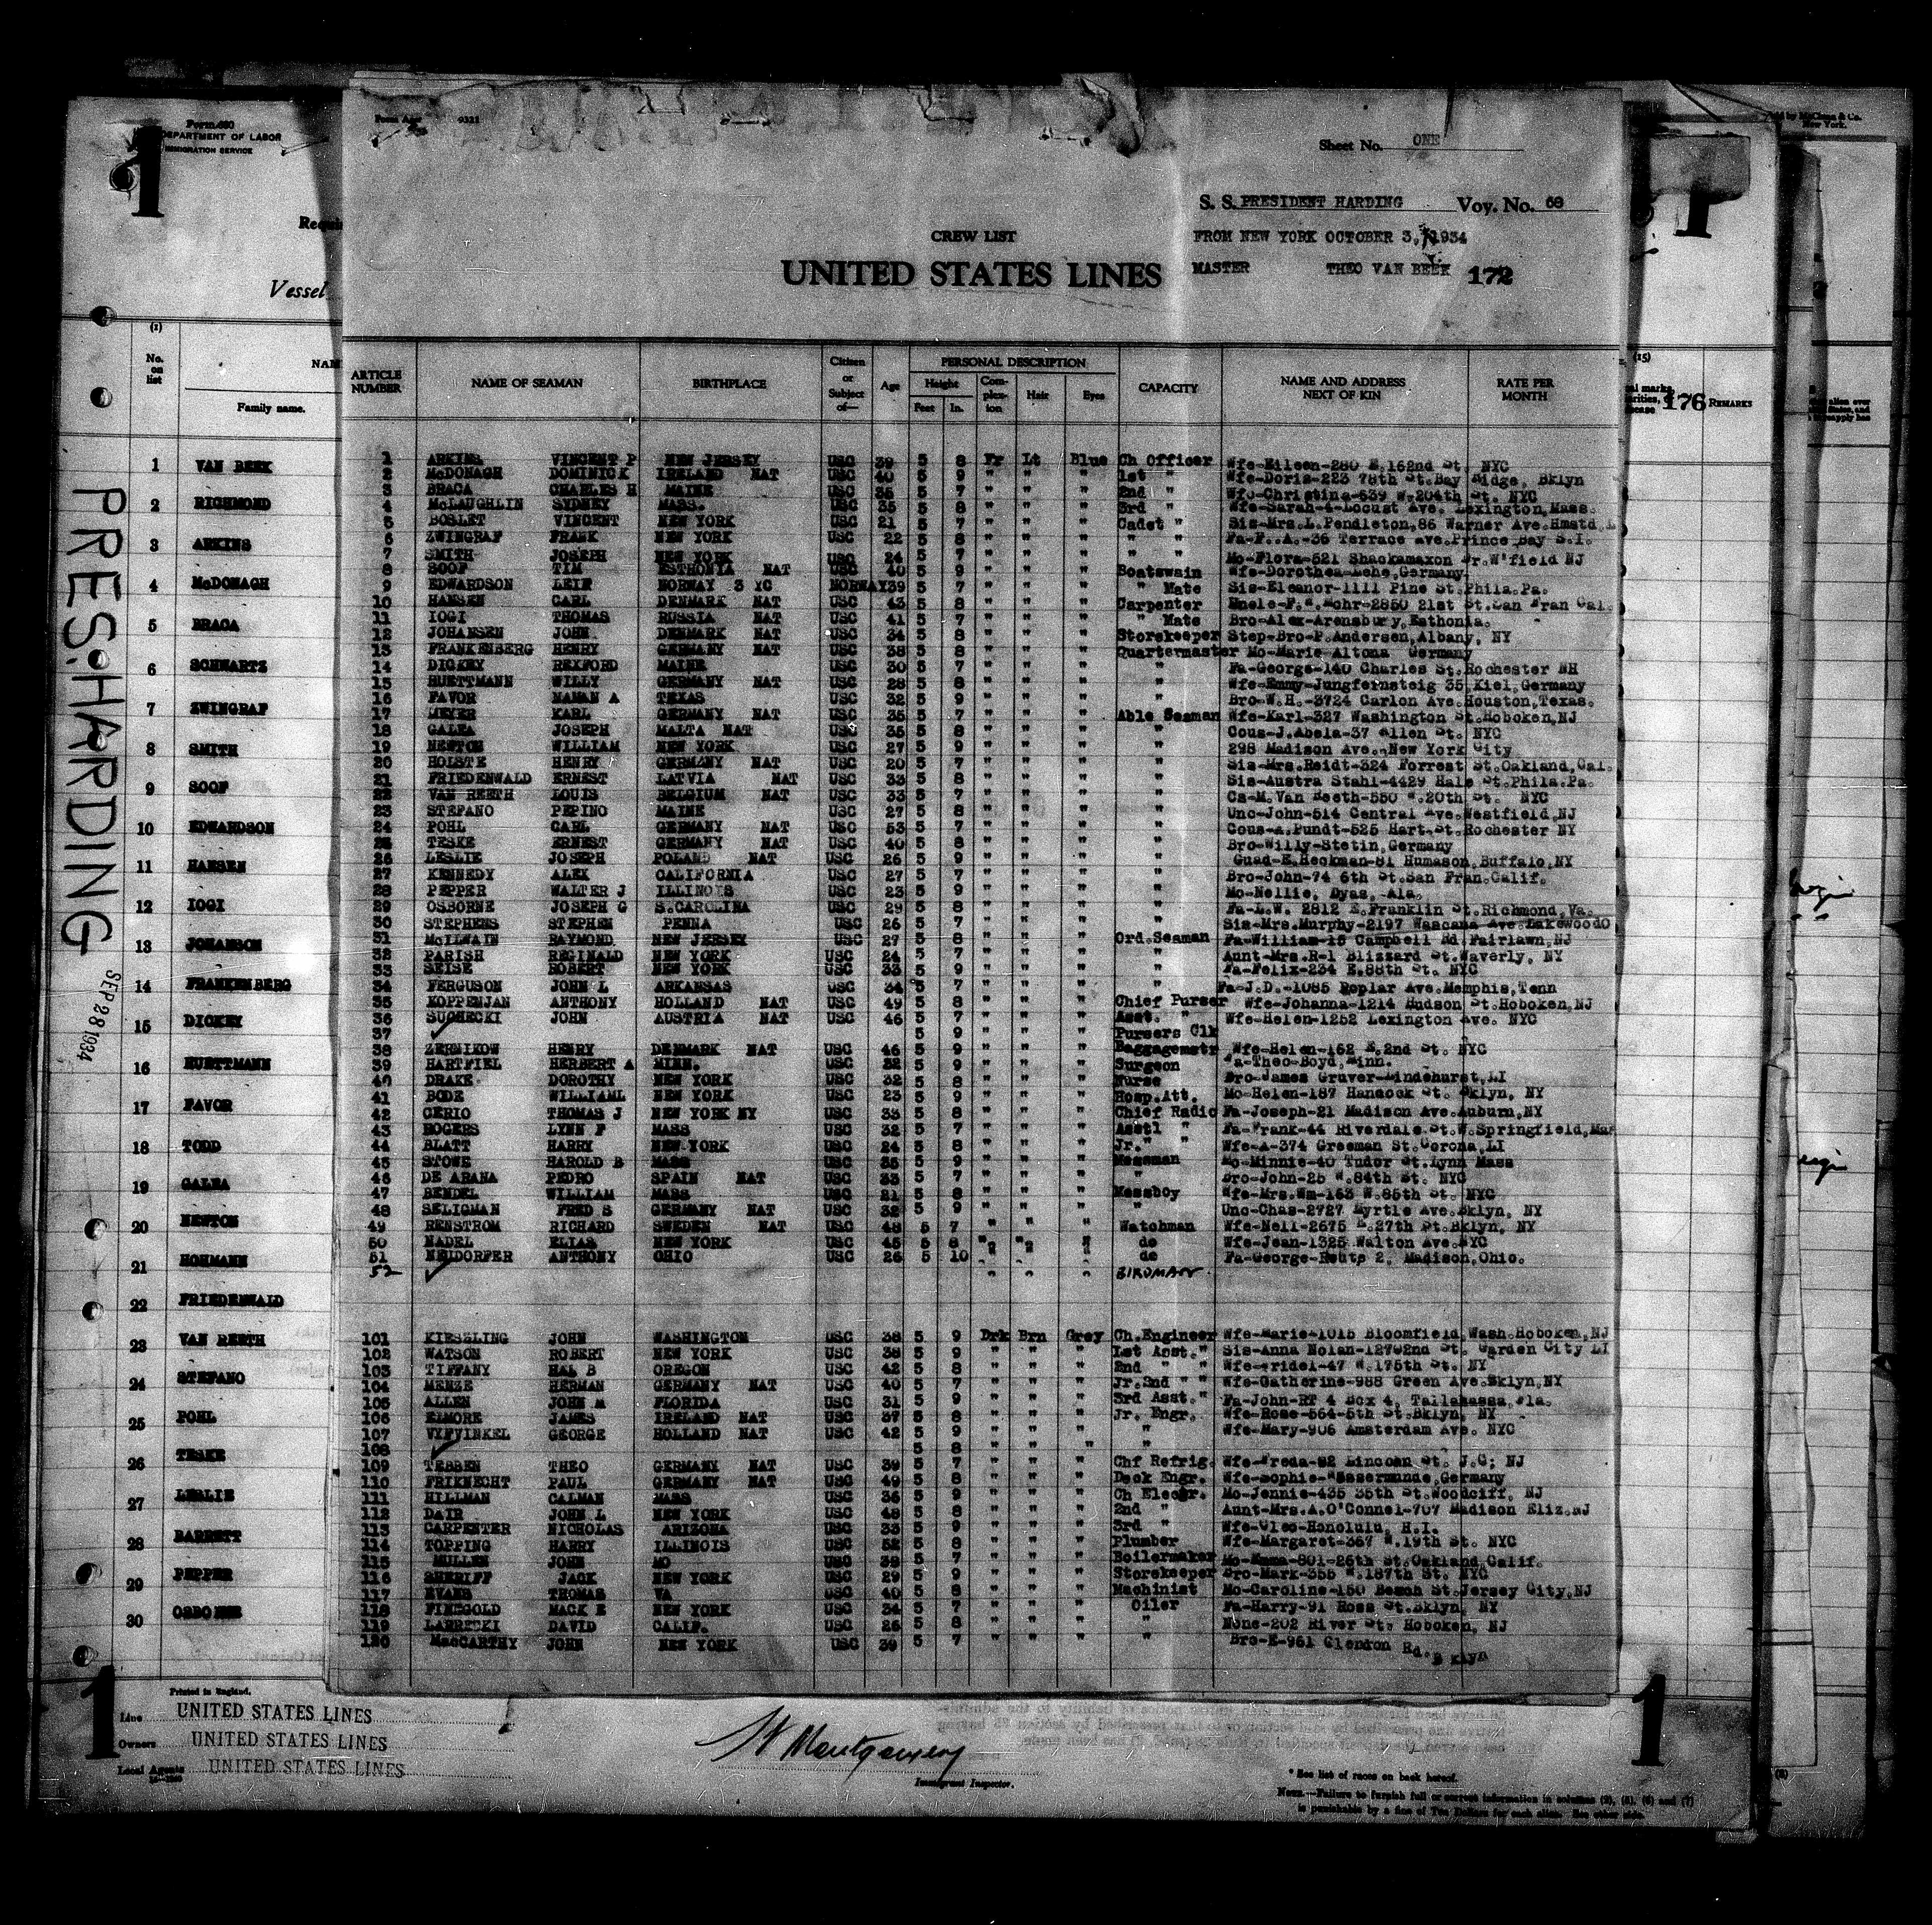 Form 680
DEPARTMENT OF LABOR
IMMIGRATION SERVICE
1
Vessel
(1)
No. on list
Family name.
1 VAN BEEK
2 RICHMOND
3 ARKINS
4 McDONAGH
5 BRACA
6 SCHWARTZ
7 ZWINGRAF
8 SMITH
9 SOOF
10 EDWARDSON
11 HANSEN
12 IOGI
13 JOHANSON
14 FRANKENBERG
15 DICKEY
16 HUETTMANN
17 FAVOR
18 TODD
19 GALEA
20 NEWTON
21 HOHMANN
22 FRIEDENWALD
23 VAN REETH
24 STEFANO
25 POHL
26 TESKE
27 LESLIE
28 BARRETT
29 PEPPER
30 OSBORNE
PRES. HARDING
SEP 28 1934
9321
Sheet No. ONE
S. S. PRESIDENT HARDING Voy. No. 68
CREW LIST
FROM NEW YORK OCTOBER 3, 1934
UNITED STATES LINES
MASTER THEO VAN BEEK 172
ARTICLE NUMBER NAME OF SEAMAN BIRTHPLACE Citizen or Subject of— Age PERSONAL DESCRIPTION Height Feet In. Complexion Hair Eyes CAPACITY NAME AND ADDRESS NEXT OF KIN RATE PER MONTH
1 ARKINS VINCENT P NEW JERSEY USC 39 5 8 Fr Lt Blue Ch Officer Wfe-Eileen-280 E.162nd St. NYC
2 McDONAGH DOMINICK IRELAND NAT USC 40 5 9 " " " 1st " Wfe-Doris-223 78th St.Bay Ridge, Bklyn
3 BRACA CHARLES H MAINE USC 36 5 7 " " " 2nd " Wfe-Christine-639 W.204th St. NYC
4 McLAUGHLIN SYDNEY MASS. USC 35 5 8 " " " 3rd " Wfe-Sarah-4-Locust Ave. Lexington,Mass.
5 BOSLET VINCENT NEW YORK USC 21 5 7 " " " Cadet " Sis-Mrs.L.Pendleton,86 Warner Ave.Hmstd.
6 ZWINGRAF FRANK NEW YORK USC 22 5 8 " " " " " Fa-F..A.-36 Terrace ave.Prince Bay S.I.
7 SMITH JOSEPH NEW YORK USC 24 5 7 " " " " " Mo-Flora-521 Shackamaxon Dr.W'field NJ
8 SOOF TIM ESTHONIA NAT USC 40 5 9 " " " Boatswain Wfe-Dorothea-Lehe,Germany
9 EDWARDSON LEIF NORWAY 3 YC NORWAY 39 5 7 " " " " Mate Sis-Eleanor-1111 Pine St.Phila.Pa.
10 HANSEN CARL DENMARK NAT USC 43 5 8 " " " Carpenter Uncle-F.W.Mohr-2850 21st St.San Fran Cal.
11 IOGI THOMAS RUSSIA NAT USC 41 5 7 " " " " Mate Bro-Alex-Arensbury,Esthonia.
12 JOHANSEN JOHN DENMARK NAT USC 34 5 8 " " " Storekeeper Step-Bro-P.Andersen,Albany, NY
13 FRANKENBERG HENRY GERMANY NAT USC 38 5 8 " " " Quartermaster Mo-Marie-Altona Germany
14 DICKEY REXFORD MAINE USC 30 5 7 " " " " Fa-George-140 Charles St.Rochester NH
15 HUETTMANN WILLY GERMANY NAT USC 28 5 8 " " " " Wfe-Emmy-Jungfernsteig 35,Kiel,Germany
16 FAVOR NAMAN A TEXAS USC 32 5 9 " " " " Bro-W.H.-3724 Carlon Ave.Houston,Texas.
17 MEYER KARL GERMANY NAT USC 35 5 7 " " " Able Seaman Wfe-Karl-327 Washington St.Hoboken,NJ
18 GALEA JOSEPH MALTA NAT USC 35 5 8 " " " " Cous-J.Abela-37 Allen St. NYC
19 NEWTON WILLIAM NEW YORK USC 27 5 9 " " " " 298 Madison Ave.-New York City
20 HOLSTE HENRY GERMANY NAT USC 20 5 7 " " " " Sis-Mrs.Reidt-324 Forrest St.Oakland,Cal.
21 FRIEDENWALD ERNEST LATVIA NAT USC 33 5 8 " " " " Sis-Austra Stahl-4429 Hale St.Phila.Pa.
22 VAN REETH LOUIS BELGIUM NAT USC 33 5 7 " " " " Cs-M.Van Beeth-550 W.20th St. NYC
23 STEFANO PEPINO MAINE USC 27 5 8 " " " " Unc-John-514 Central Ave.Westfield,NJ
24 POHL CARL GERMANY NAT USC 53 5 7 " " " " Cous-A.Pundt-525 Hart.St.Rochester NY
25 TESKE ERNEST GERMANY NAT USC 40 5 8 " " " " Bro-Willy-Stetin,Germany
26 LESLIE JOSEPH POLAND NAT USC 26 5 9 " " " " Guad-E.Heckman-81 Humason,Buffalo,NY
27 KENNEDY ALEX CALIFORNIA USC 27 5 7 " " " " Bro-John-74 6th St.San Fran.Calif.
28 PEPPER WALTER J ILLINOIS USC 23 5 9 " " " " Mo-Nellie, Dyas, Ala.
29 OSBORNE JOSEPH G S.CAROLINA USC 29 5 8 " " " " Fa-L.W. 2812 E.Franklin St.Richmond,Va.
30 STEPHENS STEPHEN PENNA USC 26 5 7 " " " " Sis-Mrs.Murphy-2197 Wascana Ave.LakewoodO
31 McILWAIN RAYMOND NEW JERSEY USC 27 5 8 " " " Ord.Seaman Fa-William-15 Campbell Rd.Fairlawn,NJ
32 PARISH REGINALD NEW YORK USC 24 5 7 " " " " Aunt-Mrs.R-1 Blizzard St.Waverly, NY
33 SEISE ROBERT NEW YORK USC 33 5 9 " " " " Fa-Felix-234 E.88th St. NYC
34 FERGUSON JOHN L ARKANSAS USC 34 5 7 " " " " Fa-J.D.-1085 Poplar Ave.Memphis,Tenn
35 KOPPENJAN ANTHONY HOLLAND NAT USC 49 5 8 " " " Chief Purser Wfe-Johanna-1214 Hudson St.Hoboken,NJ
36 SUCHECKI JOHN AUSTRIA NAT USC 46 5 7 " " " Asst. " Wfe-Helen-1252 Lexington Ave. NYC
37 5 9 " " " Pursers Clk
38 ZERNIKOW HENRY DENMARK NAT USC 46 5 9 " " " Baggagemstr Wfe-Helen-162 E.2nd St. NYC
39 HARTFIEL HERBERT A MINN. USC 32 5 9 " " " Surgeon Fa-Theo-Boyd,Minn.
40 DRAKE DOROTHY NEW YORK USC 32 5 8 " " " Nurse Bro-James Gruver-Lindehurst,LI
41 BODE WILLIAML NEW YORK USC 23 5 9 " " " Hosp.Att. Mo-Helen-187 Hancock St. Bklyn, NY
42 CERIO THOMAS J NEW YORK NY USC 33 5 8 " " " Chief Radio Fa-Joseph-21 Madison Ave.Auburn,NY
43 ROGERS LYNN F MASS USC 32 5 7 " " " Asstl " Fa-Frank-44 Riverdale St.W.Springfield,Mas
44 BLATT HARRY NEW YORK USC 24 5 8 " " " Jr. " " Wfe-A-374 Greeman St.Corona,LI
45 STOWE HAROLD B MASS USC 35 5 9 " " " Messman Mo-Minnie-40 Tudor St.Lynn Mass
46 DE ARANA PEDRO SPAIN NAT USC 33 5 7 " " " " Bro-John-25 W.84th St. NYC
47 BENDEL WILLIAM MASS USC 21 5 8 " " " Messboy Wfe-Mrs.Wm-153 W.85th St. NYC
48 SELIGMAN FRED S GERMANY NAT USC 32 5 9 " " " " Unc-Chas-2727 Myrtle Ave.Bklyn, NY
49 RENSTROM RICHARD SWEDEN NAT USC 48 5 7 " " " Watchman Wfe-Nell-2675 E.27th St.Bklyn, NY
50 NADEL ELIAS NEW YORK USC 45 5 8 " " " do Wfe-Jean-1325 Walton Ave.NYC
51 NEIDORFER ANTHONY OHIO USC 26 5 10 " " " do Fa-George-Route 2, Madison,Ohio.
52 " " " BIRDMAN
101 KIESELING JOHN WASHINGTON USC 38 5 9 Drk Brn Grey Ch.Engineer Wfe-Marie-1015 Bloomfield,Wash.Hoboken,NJ
102 WATSON ROBERT NEW YORK USC 38 5 9 " " " 1st Asst." Sis-Anna Nolan-12702nd St. Garden City LI
103 TIFFANY HAL B OREGON USC 42 5 8 " " " 2nd " " Wfe-Fridel-47 W.175th St. NY
104 MENZE HERMAN GERMANY NAT USC 40 5 7 " " " Jr.2nd " " Wfe-Catherine-988 Green Ave.Bklyn,NY
105 ALLEN JOHN M FLORIDA USC 31 5 9 " " " 3rd Asst. " Fa-John-RT 4 Box 4, Tallahassa,Fla.
106 ELMORE JAMES IRELAND NAT USC 37 5 8 " " " Jr. Engr. Wfe-Rose-564-5th St.Bklyn, NY
107 VYFVINKEL GEORGE HOLLAND NAT USC 42 5 9 " " " " Wfe-Mary-906 Amsterdam Ave. NYC
108 5 8 " " " "
109 TEBBEN THEO GERMANY NAT USC 39 5 7 " " " Chf Refrig. Wfe-Freda-92 Lincoan St. J.C; NJ
110 FRIKNECHT PAUL GERMANY NAT USC 49 5 8 " " " Deck Engr. Wfe-Sophie-Wesermunde,Germany
111 HILLMAN CALMAN MASS USC 36 5 9 " " " Ch Elecgr. Mo-Jennie-435 35th St.Woodciff, NJ
112 DAIR JOHN L NEW YORK USC 48 5 8 " " " 2nd " Aunt-Mrs.A.O'Connel-707 Madison Eliz.NJ
113 CARPENTER NICHOLAS ARIZONA USC 33 5 9 " " " 3rd " Wfe-Cleo-Honolulu, H.I.
114 TOPPING HARRY ILLINOIS USC 52 5 8 " " " Plumber Wfe-Margaret-367 W.19th St. NYC
115 MULLEN JOHN MO USC 39 5 7 " " " Boilermaker Mo-Emma-801-26th St.Oakland,Calif.
116 SHERIFF JACK NEW YORK USC 29 5 9 " " " Storekeeper Bro-Mark-355 W.187th St. NYC
117 EVANS THOMAS VA USC 40 5 8 " " " Machinist Mo-Caroline-150 Beach St.Jersey City,NJ
118 FINEGOLD MACK E NEW YORK USC 34 5 7 " " " Oiler Fa-Harry-91 Ross St.Bklyn, NY
119 LABRECKI DAVID CALIF. USC 26 5 8 " " " " None-202 River St. Hoboken, NJ
120 MacCARTHY JOHN NEW YORK USC 39 5 7 " " " " Bro-E-961 Glendon Rd. Bklyn
(15)
176 REMARKS
1
New York.
Printed in England.
Line UNITED STATES LINES
Owners UNITED STATES LINES
Local Agents UNITED STATES LINES
1
H Montgomery
Immigrant Inspector.
* See list of races on back hereof.
NOTE.—Failure to furnish full or correct information in columns (2), (5), (6) and (7)
is punishable by a fine of Ten Dollars for each alien. See other side.
1